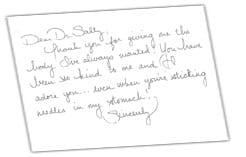 Dear Dr. Sally,
Thank you for giving me the
body I've always wanted! You have
been so kind to me and I
adore you... even when you're sticking
needles in my stomach :)
Sincerely